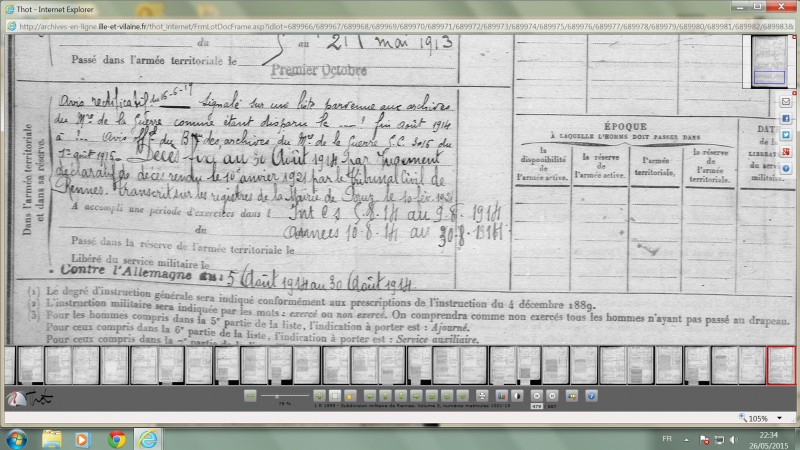 Thot - Internet Explorer
http://archives-en-ligne.ille-et-vilaine.fr/thot_internet/FrmLotDocFrame.asp?idlot=689966/689967/689968/689969/689970/689971/689972/689973/689974/689975/689976/689977/689978/689979/689980/689981/689982/689983&
du au 21 mai 1913
Passé dans l'armée territoriale le
Premier Octobre
Dans l'armée territoriale
et dans sa réserve.
Avis rectificatif du 16-6-17 Signalé sur une liste parvenue aux archives
du Mre de la Guerre comme étant disparu le fin août 1914
à Avis du des archives du Mre de la Guerre 3015 du
1er août 1915. Décès au 30 Août 1914 par Jugement
déclaratif de décès rendu le 10 janvier 1921 par le Tribunal Civil de
Rennes. Transcrit sur les registres de la Mairie de le 10 fév. 1921
A accompli une période d'exercices dans l Int C s 5.8.14 au 9.8.1914
du Armées 10.8.14 au 30.8.1914
Passé dans la réserve de l'armée territoriale le
Libéré du service militaire le
Contre l'Allemagne du 5 Août 1914 au 30 Août 1914
ÉPOQUE
À LAQUELLE L'HOMME DOIT PASSER DANS
la disponibilité de l'armée active.
la réserve de l'armée active.
l'armée territoriale.
la réserve de l'armée territoriale.
DAT
de la
LIBÉRA
du serv
militaire.
(1) Le degré d'instruction générale sera indiqué conformément aux prescriptions de l'instruction du 4 décembre 1889.
(2) L'instruction militaire sera indiquée par les mots : exercé ou non exercé. On comprendra comme non exercés tous les hommes n'ayant pas passé au drapeau.
(3) Pour les hommes compris dans la 5e partie de la liste, l'indication à porter est : Ajourné.
Pour ceux compris dans la 6e partie de la liste, l'indication à porter est : Service auxiliaire.
Pour ceux compris dans la 7e partie de la
Thot
79 %
1 R 1999 - Subdivision militaire de Rennes. Volume 3, numéros matricules 1001-15
479
105%
FR
22:34
26/05/2015